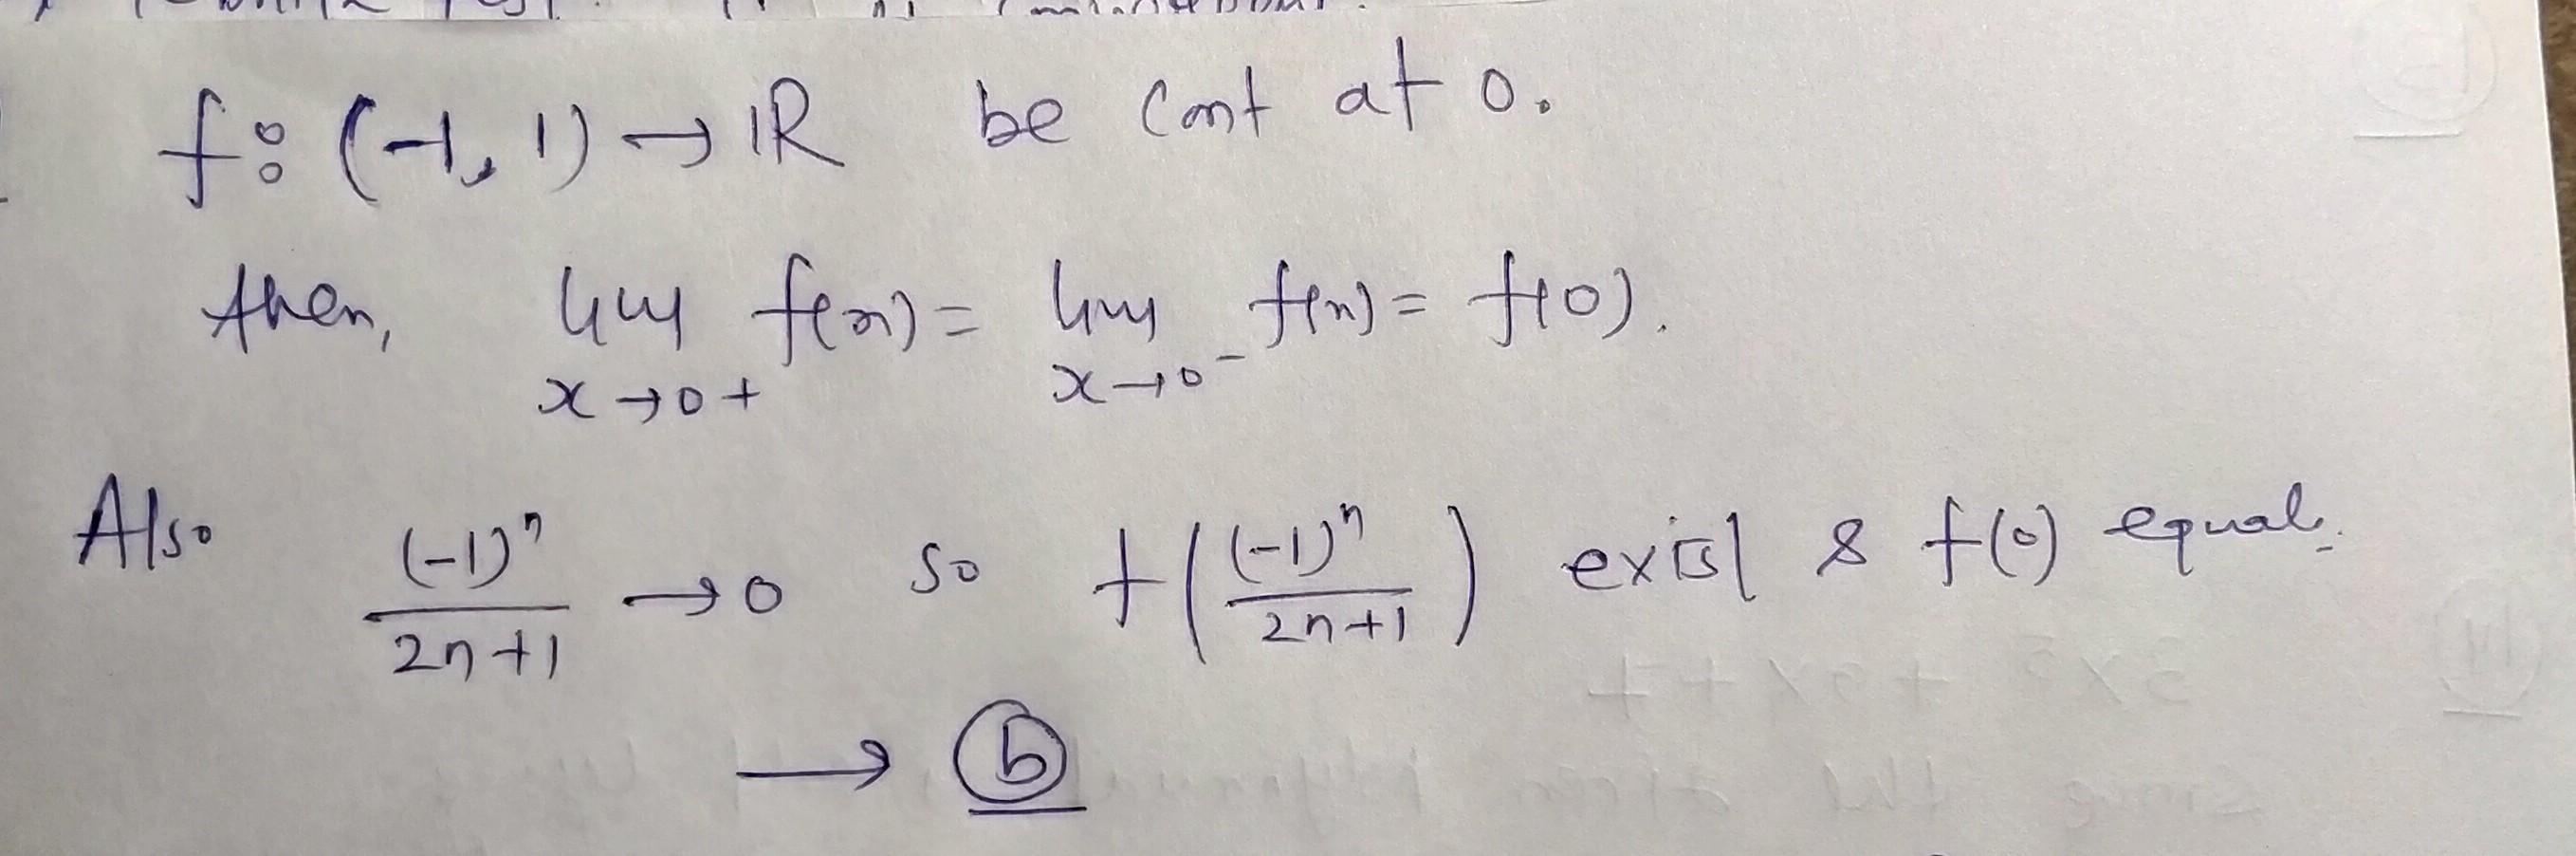 f: (-1, 1) → ℝ be cont at 0.
then, lim f(x) = lim f(x) = f(0).
x→0+ x→0-
Also (-1)^n/(2n+1) → 0 so f((-1)^n/(2n+1)) exist & f(0) equal.
→ (b)